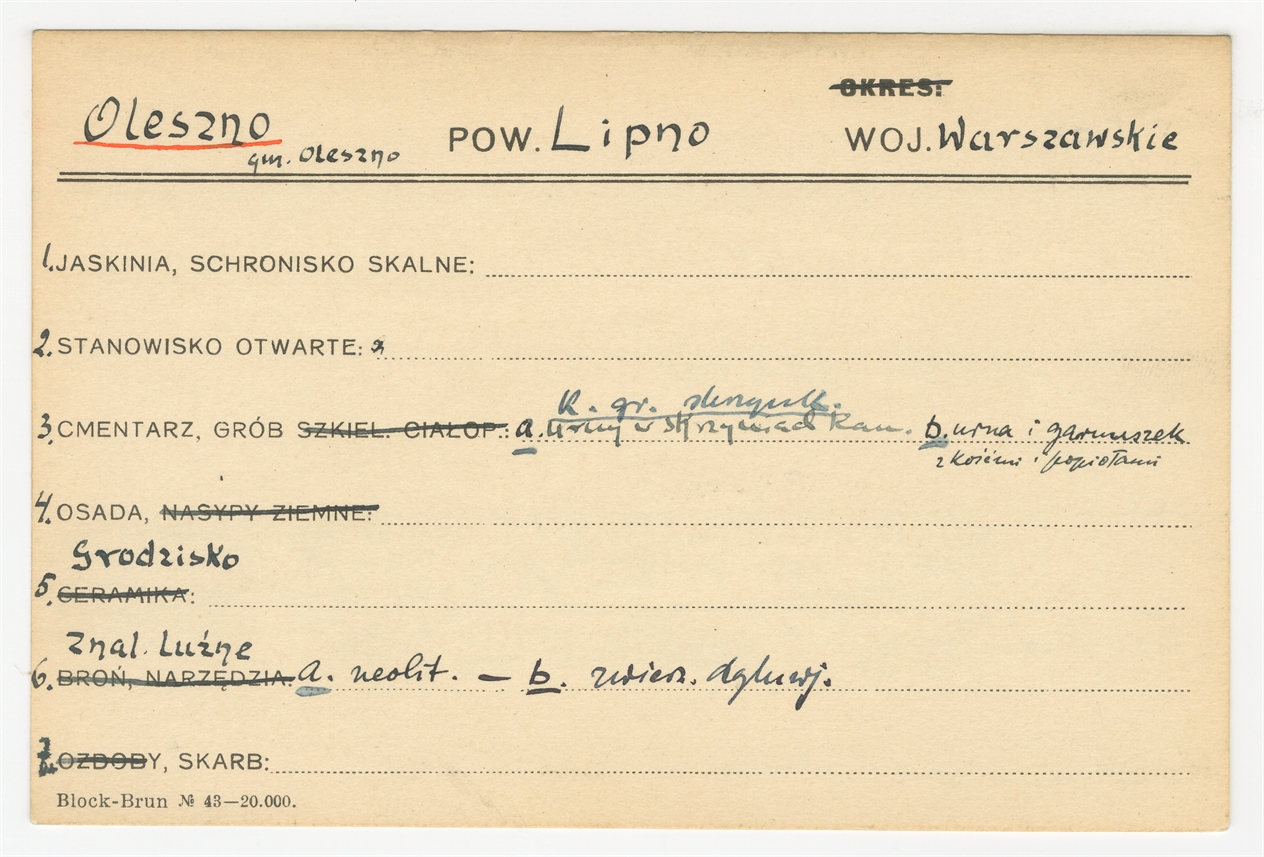 OKRES:
Oleszno POW. Lipno WOJ. Warszawskie
gm. Oleszno
1. JASKINIA, SCHRONISKO SKALNE:
2. STANOWISKO OTWARTE:
K. gr. skrzynk.
3. CMENTARZ, GRÓB SZKIEL. CIAŁOP.: a. urny w skrzyniach kam. b. urna i garnuszek
z kośćmi i popiołami
4. OSADA, NASYPY ZIEMNE:
Grodzisko
5. CERAMIKA:
Znal. Luźne
6. BROŃ, NARZĘDZIA. a. neolit. — b.
7. OZDOBY, SKARB:
Block-Brun № 43—20.000.